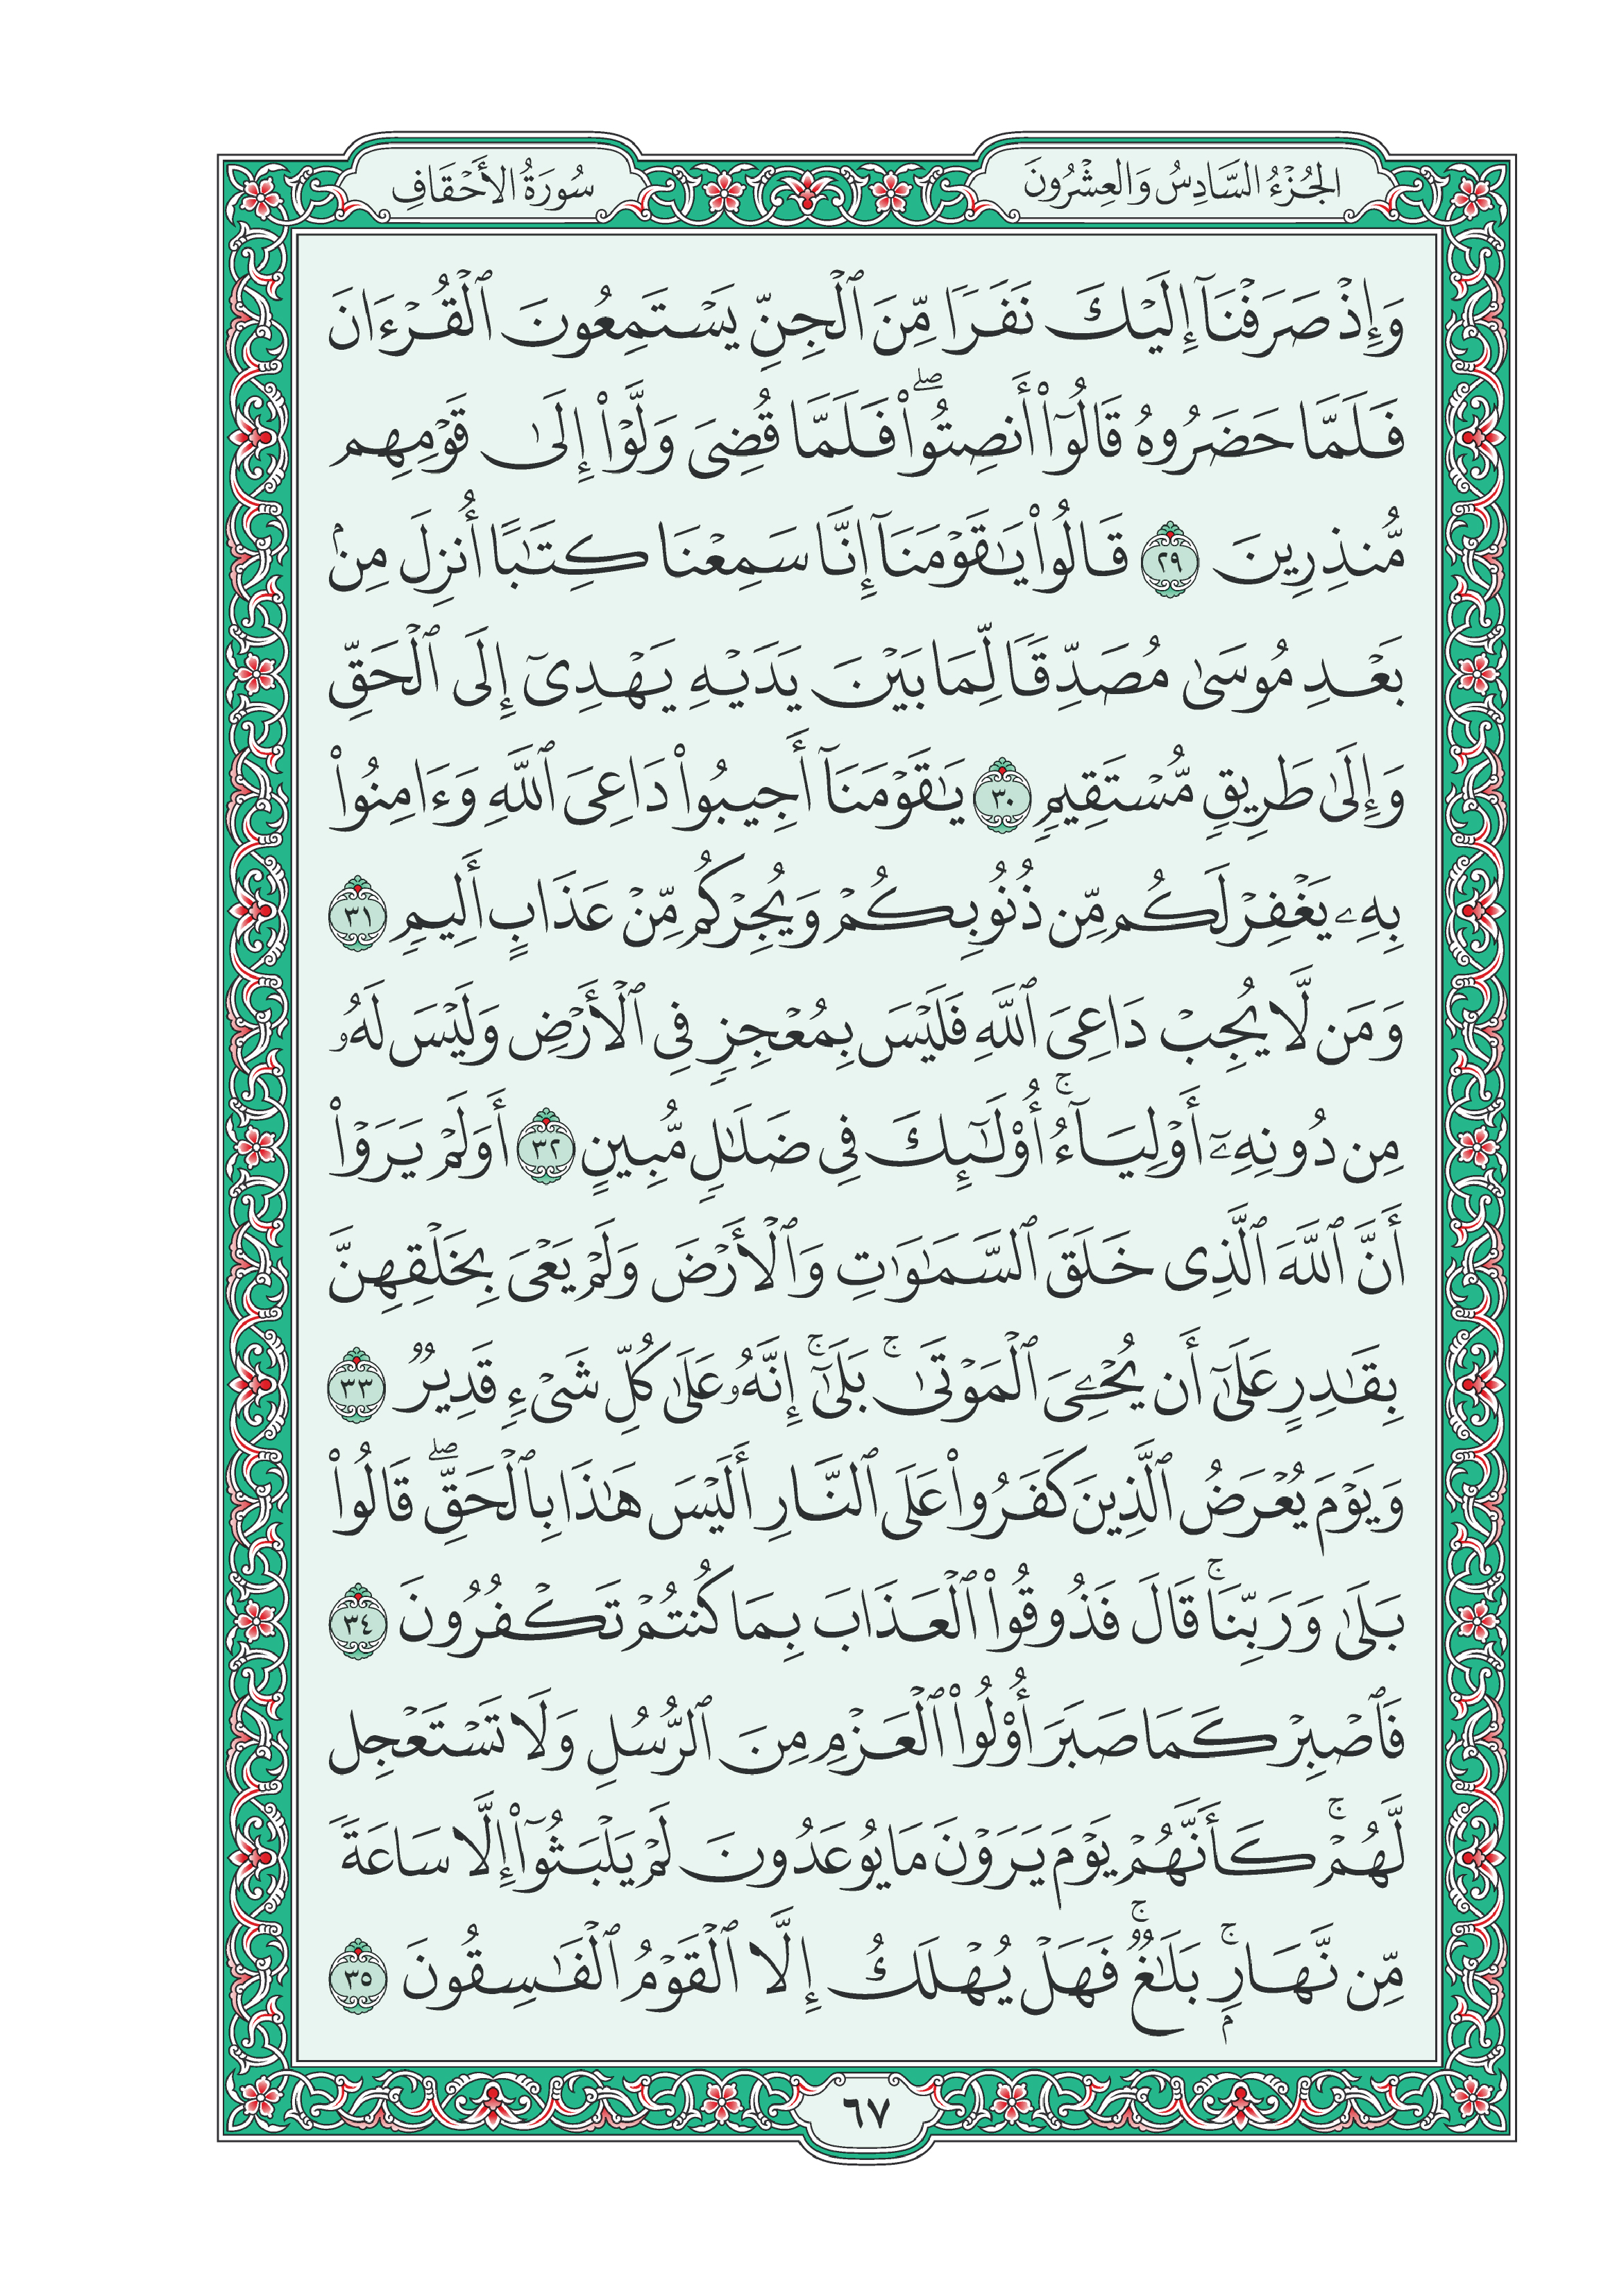 الجُزْءُ السَّادِسُ وَالعِشْرُونَ
سُورَةُ الأَحْقَافِ
وَإِذْ صَرَفْنَآ إِلَيْكَ نَفَرًا مِّنَ ٱلْجِنِّ يَسْتَمِعُونَ ٱلْقُرْءَانَ
فَلَمَّا حَضَرُوهُ قَالُوٓا۟ أَنصِتُوا۟ ۖ فَلَمَّا قُضِىَ وَلَّوْا۟ إِلَىٰ قَوْمِهِم
مُّنذِرِينَ ٢٩ قَالُوا۟ يَـٰقَوْمَنَآ إِنَّا سَمِعْنَا كِتَـٰبًا أُنزِلَ مِنۢ
بَعْدِ مُوسَىٰ مُصَدِّقًا لِّمَا بَيْنَ يَدَيْهِ يَهْدِىٓ إِلَى ٱلْحَقِّ
وَإِلَىٰ طَرِيقٍ مُّسْتَقِيمٍ ٣٠ يَـٰقَوْمَنَآ أَجِيبُوا۟ دَاعِىَ ٱللَّهِ وَءَامِنُوا۟
بِهِۦ يَغْفِرْ لَكُم مِّن ذُنُوبِكُمْ وَيُجِرْكُم مِّنْ عَذَابٍ أَلِيمٍ ٣١
وَمَن لَّا يُجِبْ دَاعِىَ ٱللَّهِ فَلَيْسَ بِمُعْجِزٍ فِى ٱلْأَرْضِ وَلَيْسَ لَهُۥ
مِن دُونِهِۦٓ أَوْلِيَآءُ ۚ أُو۟لَـٰٓئِكَ فِى ضَلَـٰلٍ مُّبِينٍ ٣٢ أَوَلَمْ يَرَوْا۟
أَنَّ ٱللَّهَ ٱلَّذِى خَلَقَ ٱلسَّمَـٰوَٰتِ وَٱلْأَرْضَ وَلَمْ يَعْىَ بِخَلْقِهِنَّ
بِقَـٰدِرٍ عَلَىٰٓ أَن يُحْـِۧىَ ٱلْمَوْتَىٰ ۚ بَلَىٰٓ ۚ إِنَّهُۥ عَلَىٰ كُلِّ شَىْءٍ قَدِيرٌ ٣٣
وَيَوْمَ يُعْرَضُ ٱلَّذِينَ كَفَرُوا۟ عَلَى ٱلنَّارِ أَلَيْسَ هَـٰذَا بِٱلْحَقِّ ۖ قَالُوا۟
بَلَىٰ وَرَبِّنَا ۚ قَالَ فَذُوقُوا۟ ٱلْعَذَابَ بِمَا كُنتُمْ تَكْفُرُونَ ٣٤
فَٱصْبِرْ كَمَا صَبَرَ أُو۟لُوا۟ ٱلْعَزْمِ مِنَ ٱلرُّسُلِ وَلَا تَسْتَعْجِل
لَّهُمْ ۚ كَأَنَّهُمْ يَوْمَ يَرَوْنَ مَا يُوعَدُونَ لَمْ يَلْبَثُوٓا۟ إِلَّا سَاعَةً
مِّن نَّهَارٍۭ ۚ بَلَـٰغٌ ۚ فَهَلْ يُهْلَكُ إِلَّا ٱلْقَوْمُ ٱلْفَـٰسِقُونَ ٣٥
٦٧